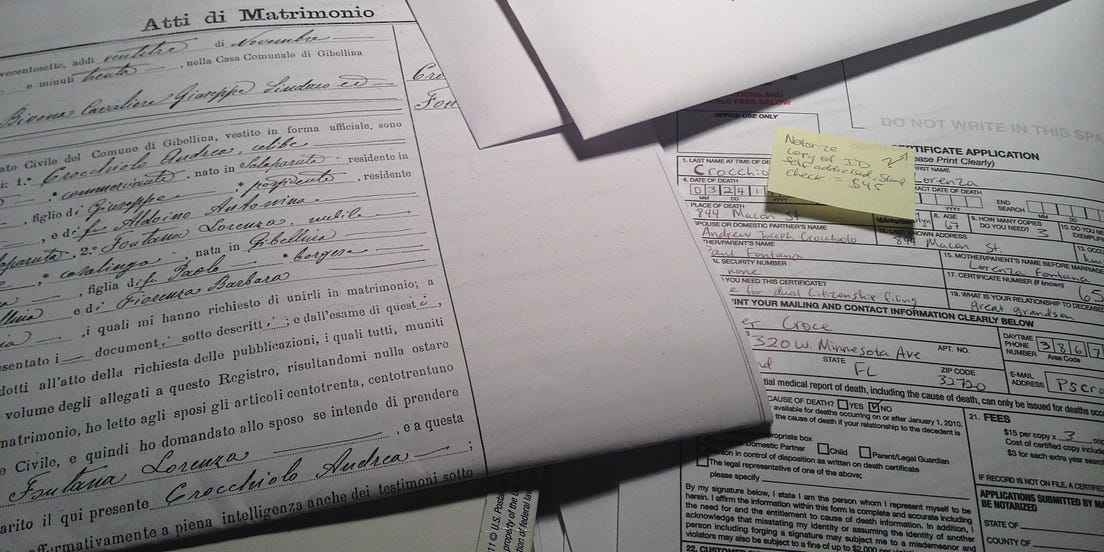 Atti di Matrimonio
vecentosette, addì ventitre di Novembre
e minuti trenta, nella Casa Comunale di Gibellina
Cavaliere Giuseppe Sindaco ed
ato Civile del Comune di Gibellina, vestito in forma ufficiale, sono
i: 1.° Crocchiolo Andrea, celibe
commerciante, nato in Salaparuta, residente in
, figlio di Giuseppe, residente
, e di Aldoino Antonina
alaparuta, 2.° Fontana Lorenza, nubile
casalinga, nata in Gibellina
, figlia di Paolo borgese
llina e di Fiorenza Barbara
, i quali mi hanno richiesto di unirli in matrimonio; a
esentato i document, sotto descritt i; e dall'esame di quest i,
dotti all'atto della richiesta delle pubblicazioni, i quali tutti, muniti
volume degli allegati a questo Registro, risultandomi nulla ostare
matrimonio, ho letto agli sposi gli articoli centotrenta, centotrentuno
e Civile, e quindi ho domandato allo sposo se intende di prendere
Fontana Lorenza, e a questa
arito il qui presente Crocchiolo Andrea;
affermativamente a piena intelligenza anche dei testimoni sotto
Cro
Fon
11 © U.S. Posta
property of the U
tion of federal law
IONS AND
ABLE FEES BELOW
OFFICE USE ONLY
DO NOT WRITE IN THIS SPA
CERTIFICATE APPLICATION
ease Print Clearly)
Notorize
copy of ID
Self addressed, Stamp
check = $45
1. LAST NAME AT TIME OF DE
Crocchio
FIRST NAME
Lorenza
4. DATE OF DEATH
0 3 2 4 1
MM DD
EXACT DATE OF DEATH
END
SEARCH
MM DD
PLACE OF DEATH
844 Macon St
klyn
8. AGE
67
9. HOW MANY COPIES
DO YOU NEED? 3
10. DO YOU NE
EXEMPLIF
SPOUSE OR DOMESTIC PARTNER'S NAME
Andrew Joseph Crocchiolo
LAST KNOWN ADDRESS
844 Macon St.
13. OCCU
THER/PARENT'S NAME
Paul Fontana
15. MOTHER/PARENT'S NAME BEFORE MARRIAGE
Lorenza Fontana
L SECURITY NUMBER
none
17. CERTIFICATE NUMBER (if known)
65
YOU NEED THIS CERTIFICATE?
e for dual Citizenship filing
19. WHAT IS YOUR RELATIONSHIP TO DECEASED
great grandson
INT YOUR MAILING AND CONTACT INFORMATION CLEARLY BELOW
er Croce
320 W. Minnesota Ave
APT. NO.
DAYTIME
PHONE
NUMBER
3 8 6 7
Area Code
nd
STATE
FL
ZIP CODE
32720
E-MAIL
ADDRESS
PScro
tial medical report of death, including the cause of death, can only be issued for deaths occu
CAUSE OF DEATH? YES NO
available for deaths occurring on or after January 1, 2010.
the cause of death if your relationship to the decedent is
opriate box
Domestic Partner Child Parent/Legal Guardian
son in control of disposition as written on death certificate
The legal representative of one of the above;
please specify
21. FEES
$15 per copy x 3
Cost of certified copy inclu
$3 for each extra year searc
IF RECORD IS NOT ON FILE, A CERTIFIE
APPLICATIONS SUBMITTED BY MA
BE NOTORIZED
STATE OF
COUNTY OF
By my signature below, I state I am the person whom I represent myself to be
herein. I affirm the information within this form is complete and accurate including
the need for and entitlement to cause of death information. In addition, I
acknowledge that misstating my identity or assuming the identity of another
person including forging a signature may subject me to a misdemeanor and
violators may also be subject to a fine of up to $2,000 per
22. CUSTOMER